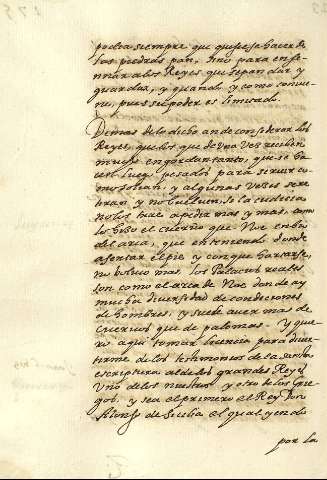 podia siempre que quisiese hacer de
las piedras pan, sino para ense-
ñar a los Reyes que sepan dar y
guardar, y quando y como convie-
ne, pues su poder es limitado.
Demas de lo dicho an de considerar los
Reyes, que los que de una vez reciben
mucho engordan tanto, que se ha-
cen luego pesados para servir co-
mo solian, y algunas veces se re-
tiran y no buelven, si la cudicia
no los hace a pedir mas y mas, como
lo hizo el cuervo que Noe enbio
del arca, que en teniendo donde
asentar el pie y con que hartarse,
no bolvio mas. los Palacios reales
son como el arca de Noe donde ay
mucha diversidad de condiciones
de hombres, y suele aver mas de
cuervos que de palomas. Y quie-
ro aqui tomar licencia para diver-
tirme de los testimonios de la sancta
escriptura al de dos grandes Reyes
uno de los nuestros y otro de los Grie-
gos. y sea el primero el Rey Don
Alonso de Sicilia el qual yendo
por la